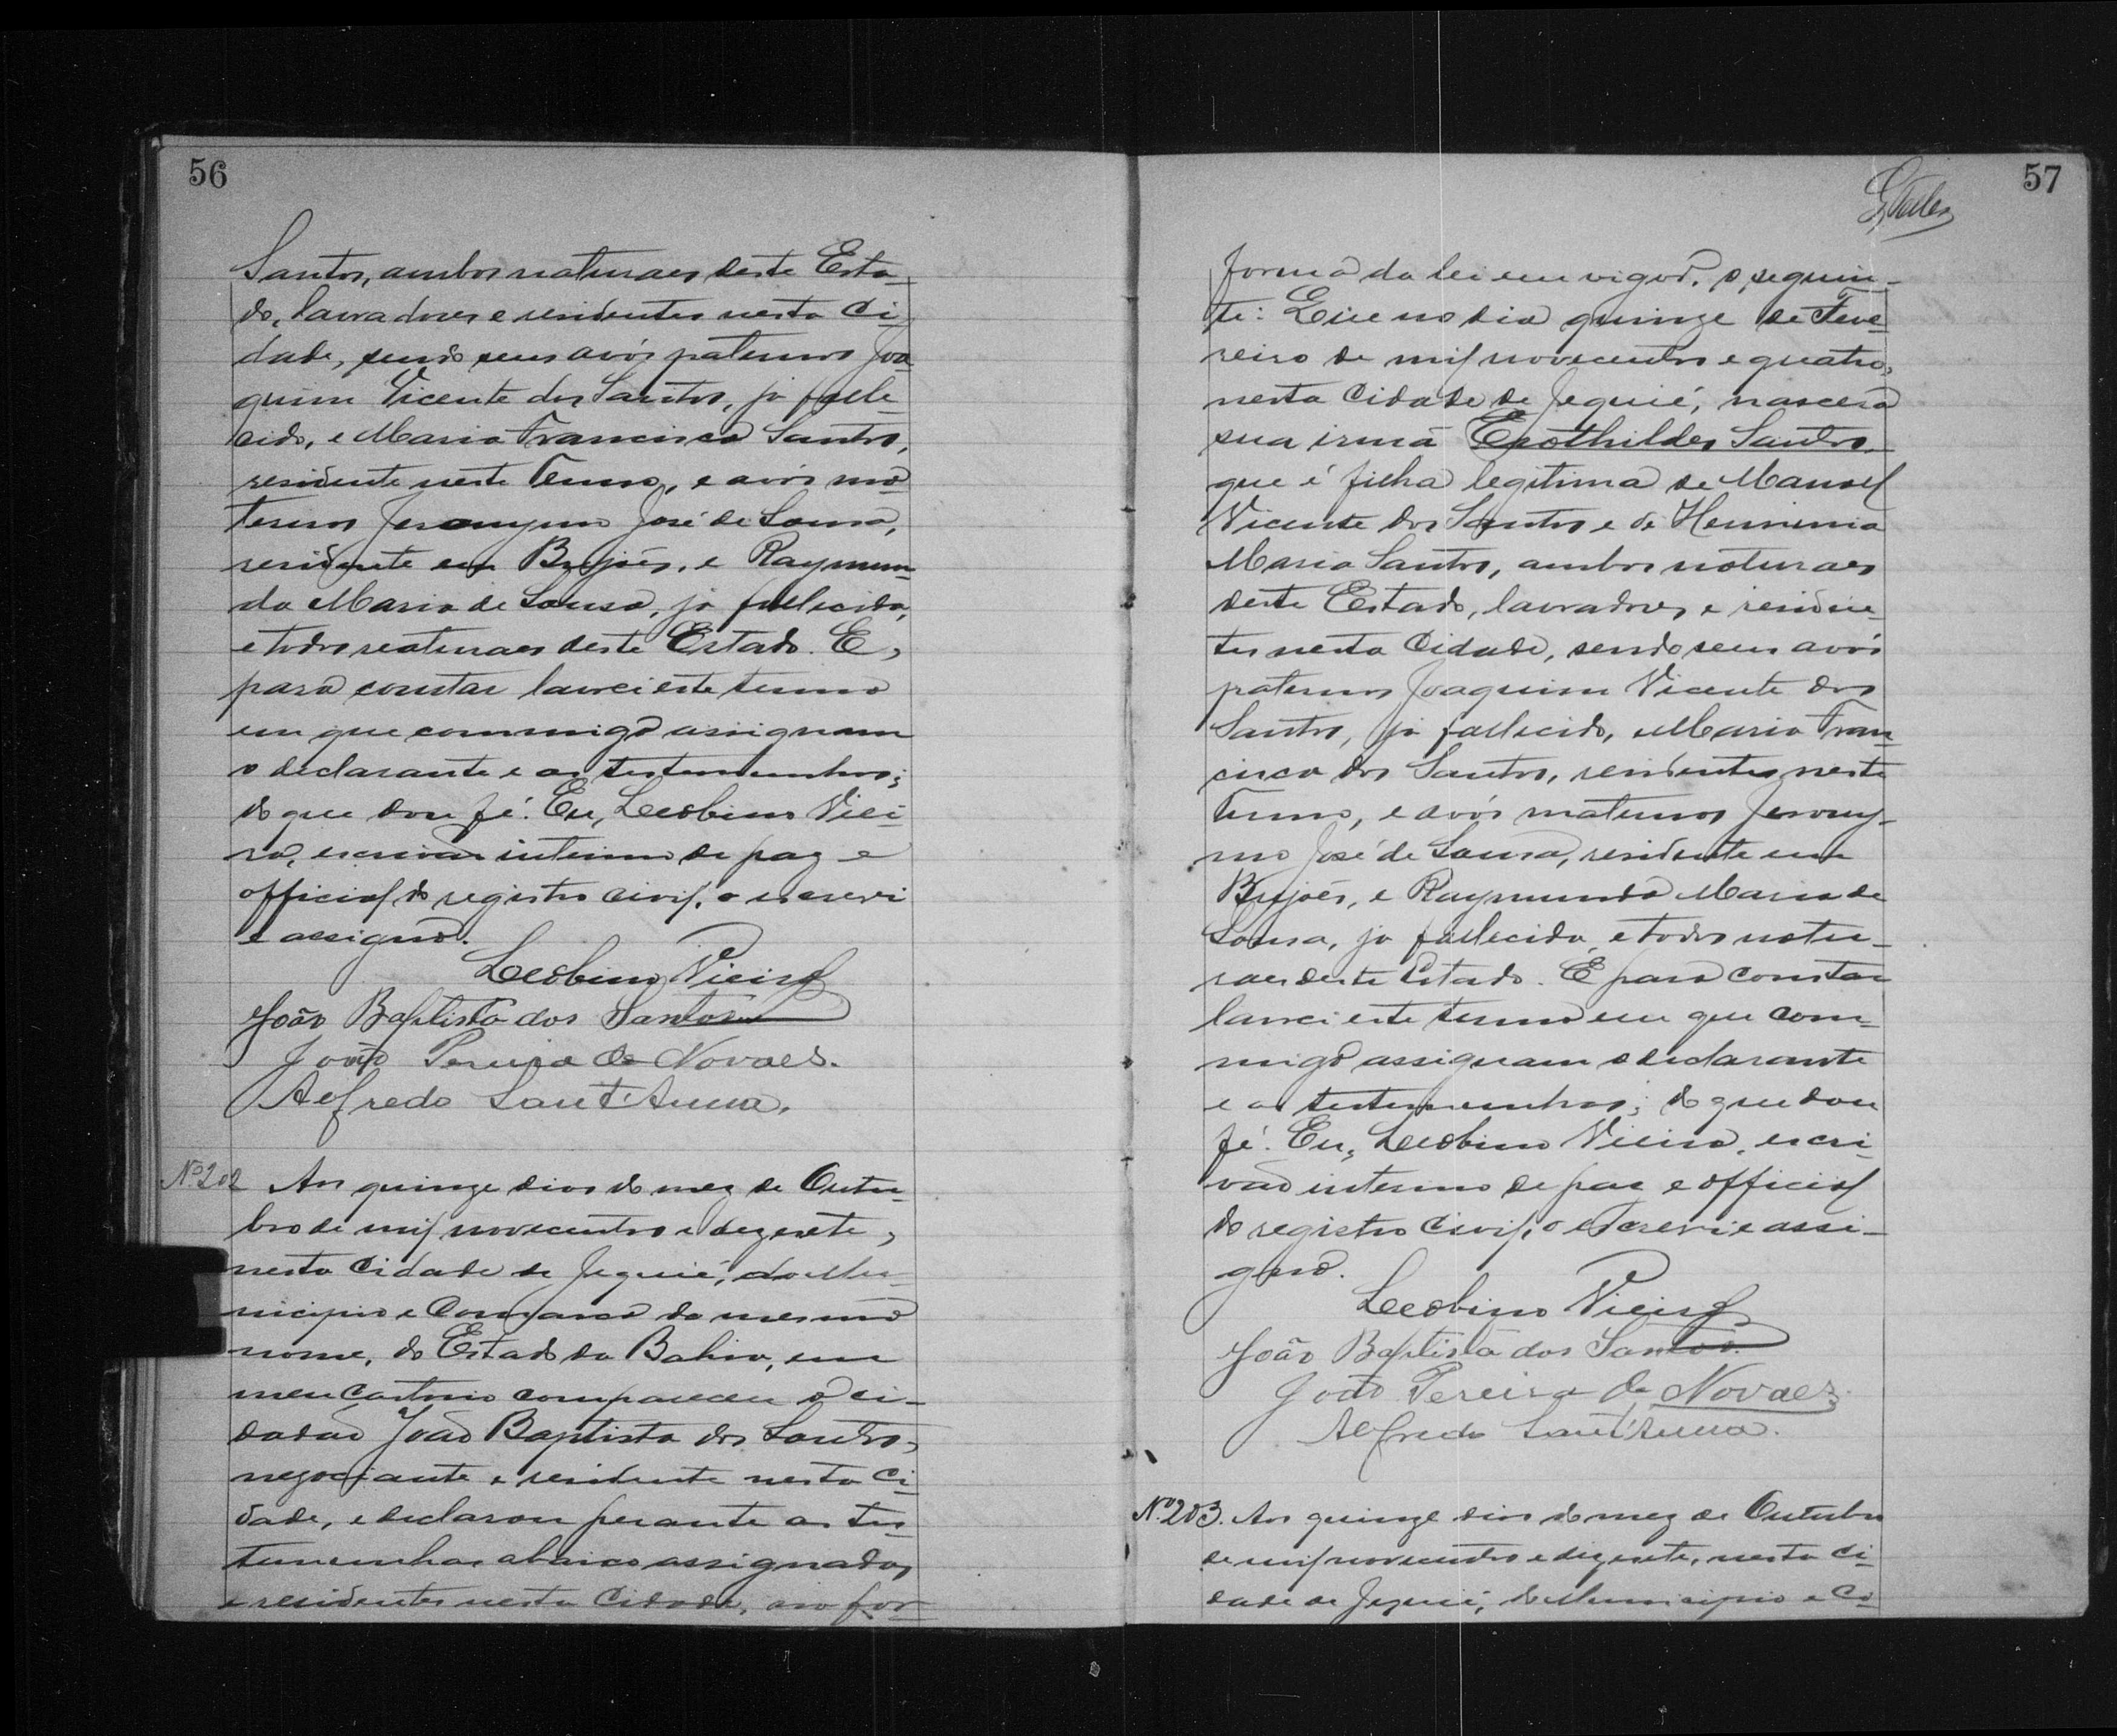 56
Santos, ambos naturaes deste Esta-
do, lavradores e residentes nesta Ci-
dade, sendo seus avós paternos Joa-
quim Vicente dos Santos, já falle-
cido, e Maria Francisca Santos,
residente neste Termo, e avós ma-
ternos Jeronymo José de Sousa,
residente em Brejões, e Raymun-
da Maria de Sousa, já fallecida,
e todos naturaes deste Estado. E,
para constar lavrei este termo
em que commigo assignam
o declarante e as testemunhas;
do que dou fé. Eu, Leobino Viei-
ra, escrivão interino de paz e
official do registro civil, o escrevi
e assigno.
Leobino Vieira
João Baptista dos Santos
João Pereira de Novaes.
Alfredo Sant'Anna.
Nº 202 Aos quinze dias do mez de Outu-
bro de mil novecentos e dezesete,
nesta Cidade de Jequié, do Mu-
nicipio e Comarca do mesmo
nome, do Estado da Bahia, em
meu Cartorio compareceu o ci-
dadão João Baptista dos Santos,
negociante e residente nesta Ci-
dade, e declarou perante as tes-
temunhas abaixo assignadas
e residentes nesta Cidade, na for-
57
forma da lei em vigor, o seguin-
te: Que no dia quinze de Feve-
reiro de mil novecentos e quatro,
nesta Cidade de Jequié, nascera
sua irmã Crothildes Santos,
que é filha legitima de Manoel
Vicente dos Santos e de Herminia
Maria Santos, ambos naturaes
deste Estado, lavradores e residen-
tes nesta Cidade, sendo seus avós
paternos Joaquim Vicente dos
Santos, já fallecido, e Maria Fran-
cisca dos Santos, residentes neste
Termo, e avós maternos Jerony-
mo José de Sousa, residente em
Brejões, e Raymunda Maria de
Sousa, já fallecida, e todos natu-
raes deste Estado. E para constar
lavrei este termo em que com-
migo assignam o declarante
e as testemunhas; do que dou
fé. Eu, Leobino Vieira, escri-
vão interino de paz e official
do registro Civil, o escrevi e assi-
gno.
Leobino Vieira
João Baptista dos Santos.
João Pereira de Novaes.
Alfredo Sant'Anna.
Nº 203. Aos quinze dias do mez de Outubro
de mil novecentos e dezesete, nesta Ci-
dade de Jequié, do Municipio e Co-